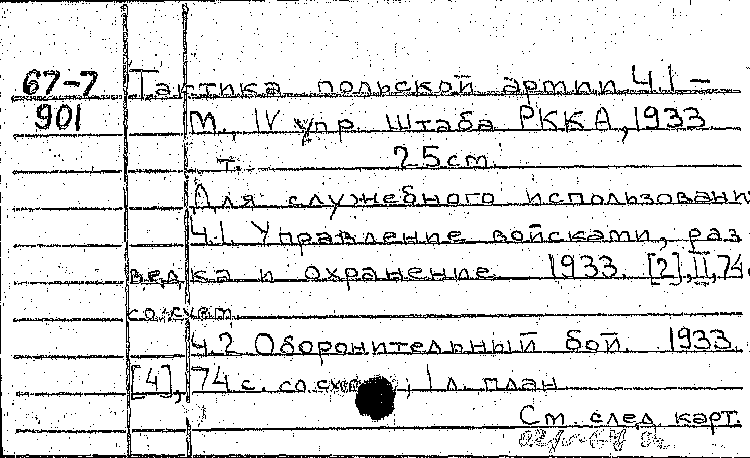 67-7 Тактика польской армии Ч.1 –
901 М., IV упр. Штаба РККА, 1933
т. 25см.
Для служебного использовани
Ч.1. Управление войсками, раз
ведка и охранение. 1933. [2], II, 74.
со схем.
Ч.2 Оборонительный бой. 1933.
[4], 74 с. со схем.; 1 л. план
См. след. карт.